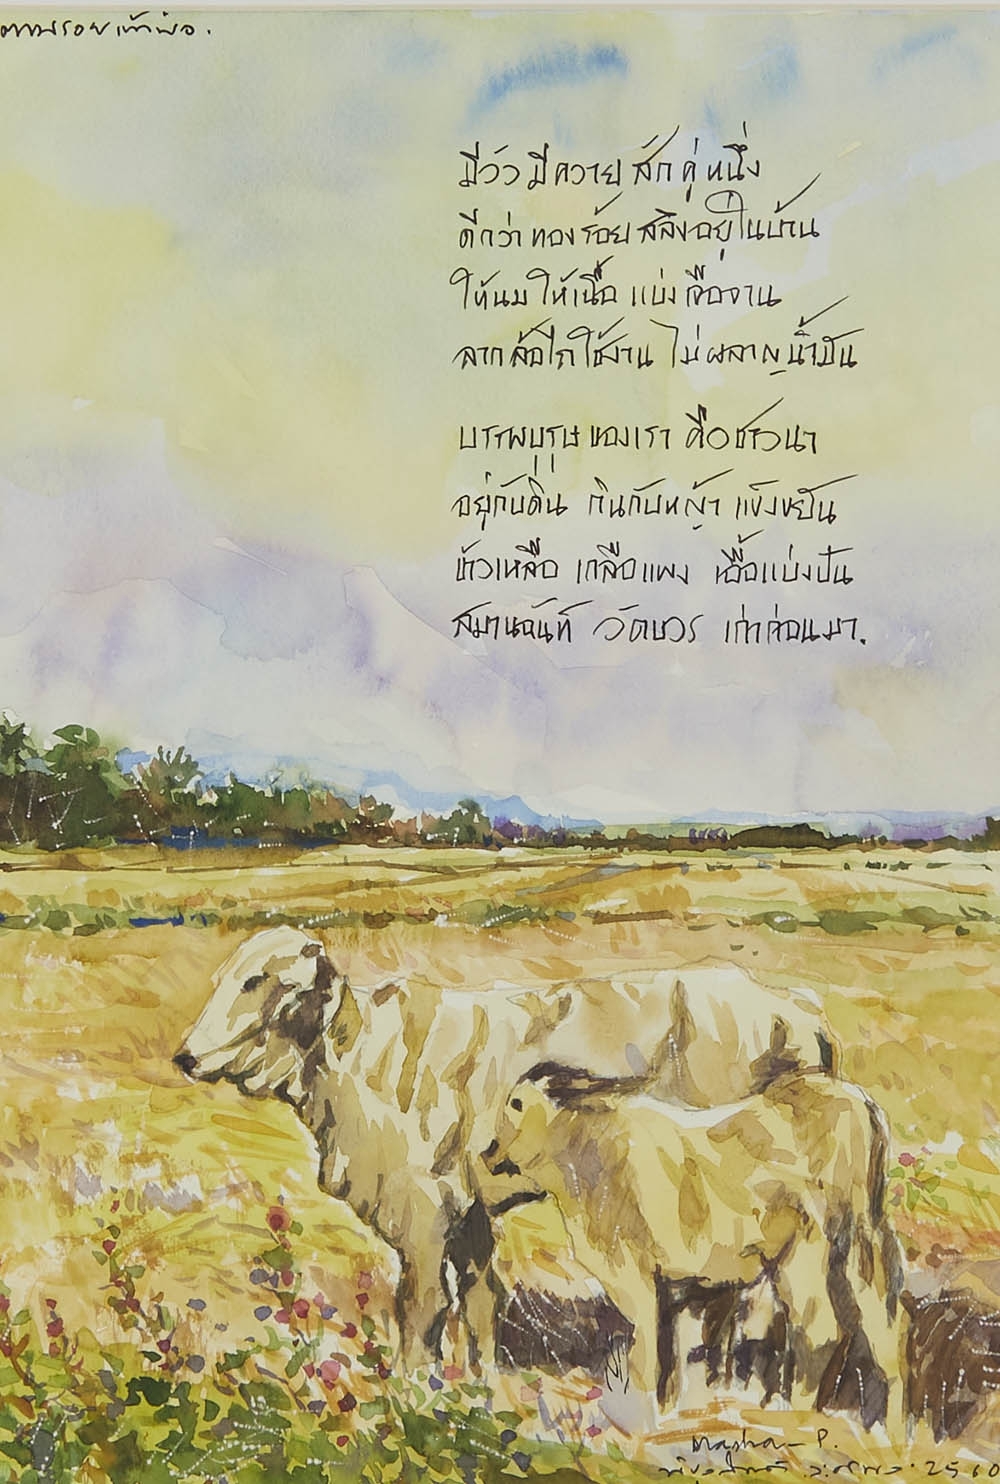 ตามรอยเท้าพ่อ.
มีวัว มีควาย สักคู่หนึ่ง
ดีกว่า ทองร้อยสลึงอยู่ในบ้าน
ให้นม ให้เนื้อ แบ่งเจือจาน
ลากล้อไถใช้งาน ไม่ผลาญน้ำมัน
บรรพบุรุษของเรา คือชาวนา
อยู่กับดิน กินกับหญ้า แข็งขยัน
ข้าวเหลือ เกลือแพง เอื้อแบ่งปัน
สมานฉันท์ วัดบวร เก่าก่อนมา.
P.